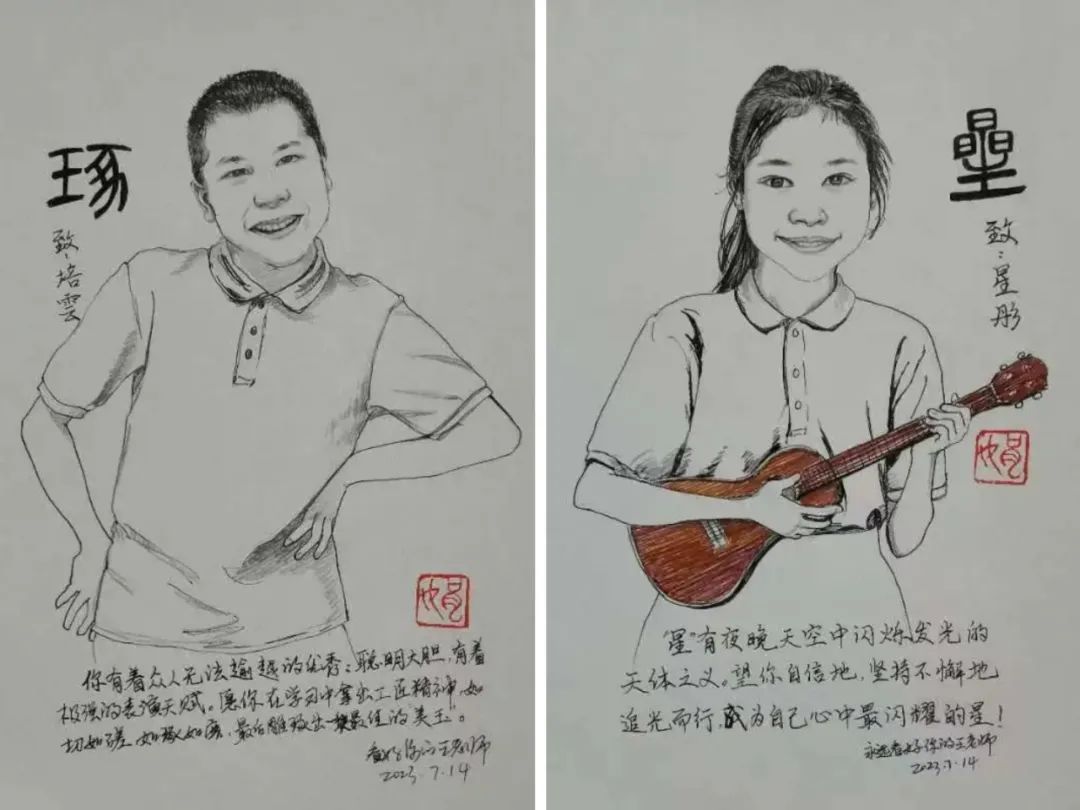 琢
致：培雲
你有着众人无法逾越的优秀：聪明大胆，有着
极强的表演天赋。愿你在学习中拿出工匠精神，如
切如磋，如琢如磨，最后雕琢出一块最佳的美玉。
看好你的王老师
2023.7.14
曐
致：星彤
“星”有夜晚天空中闪烁发光的
天体之义。望你自信地，坚持不懈地
追光而行，成为自己心中最闪耀的星！
永远看好你的王老师
2023.7.14